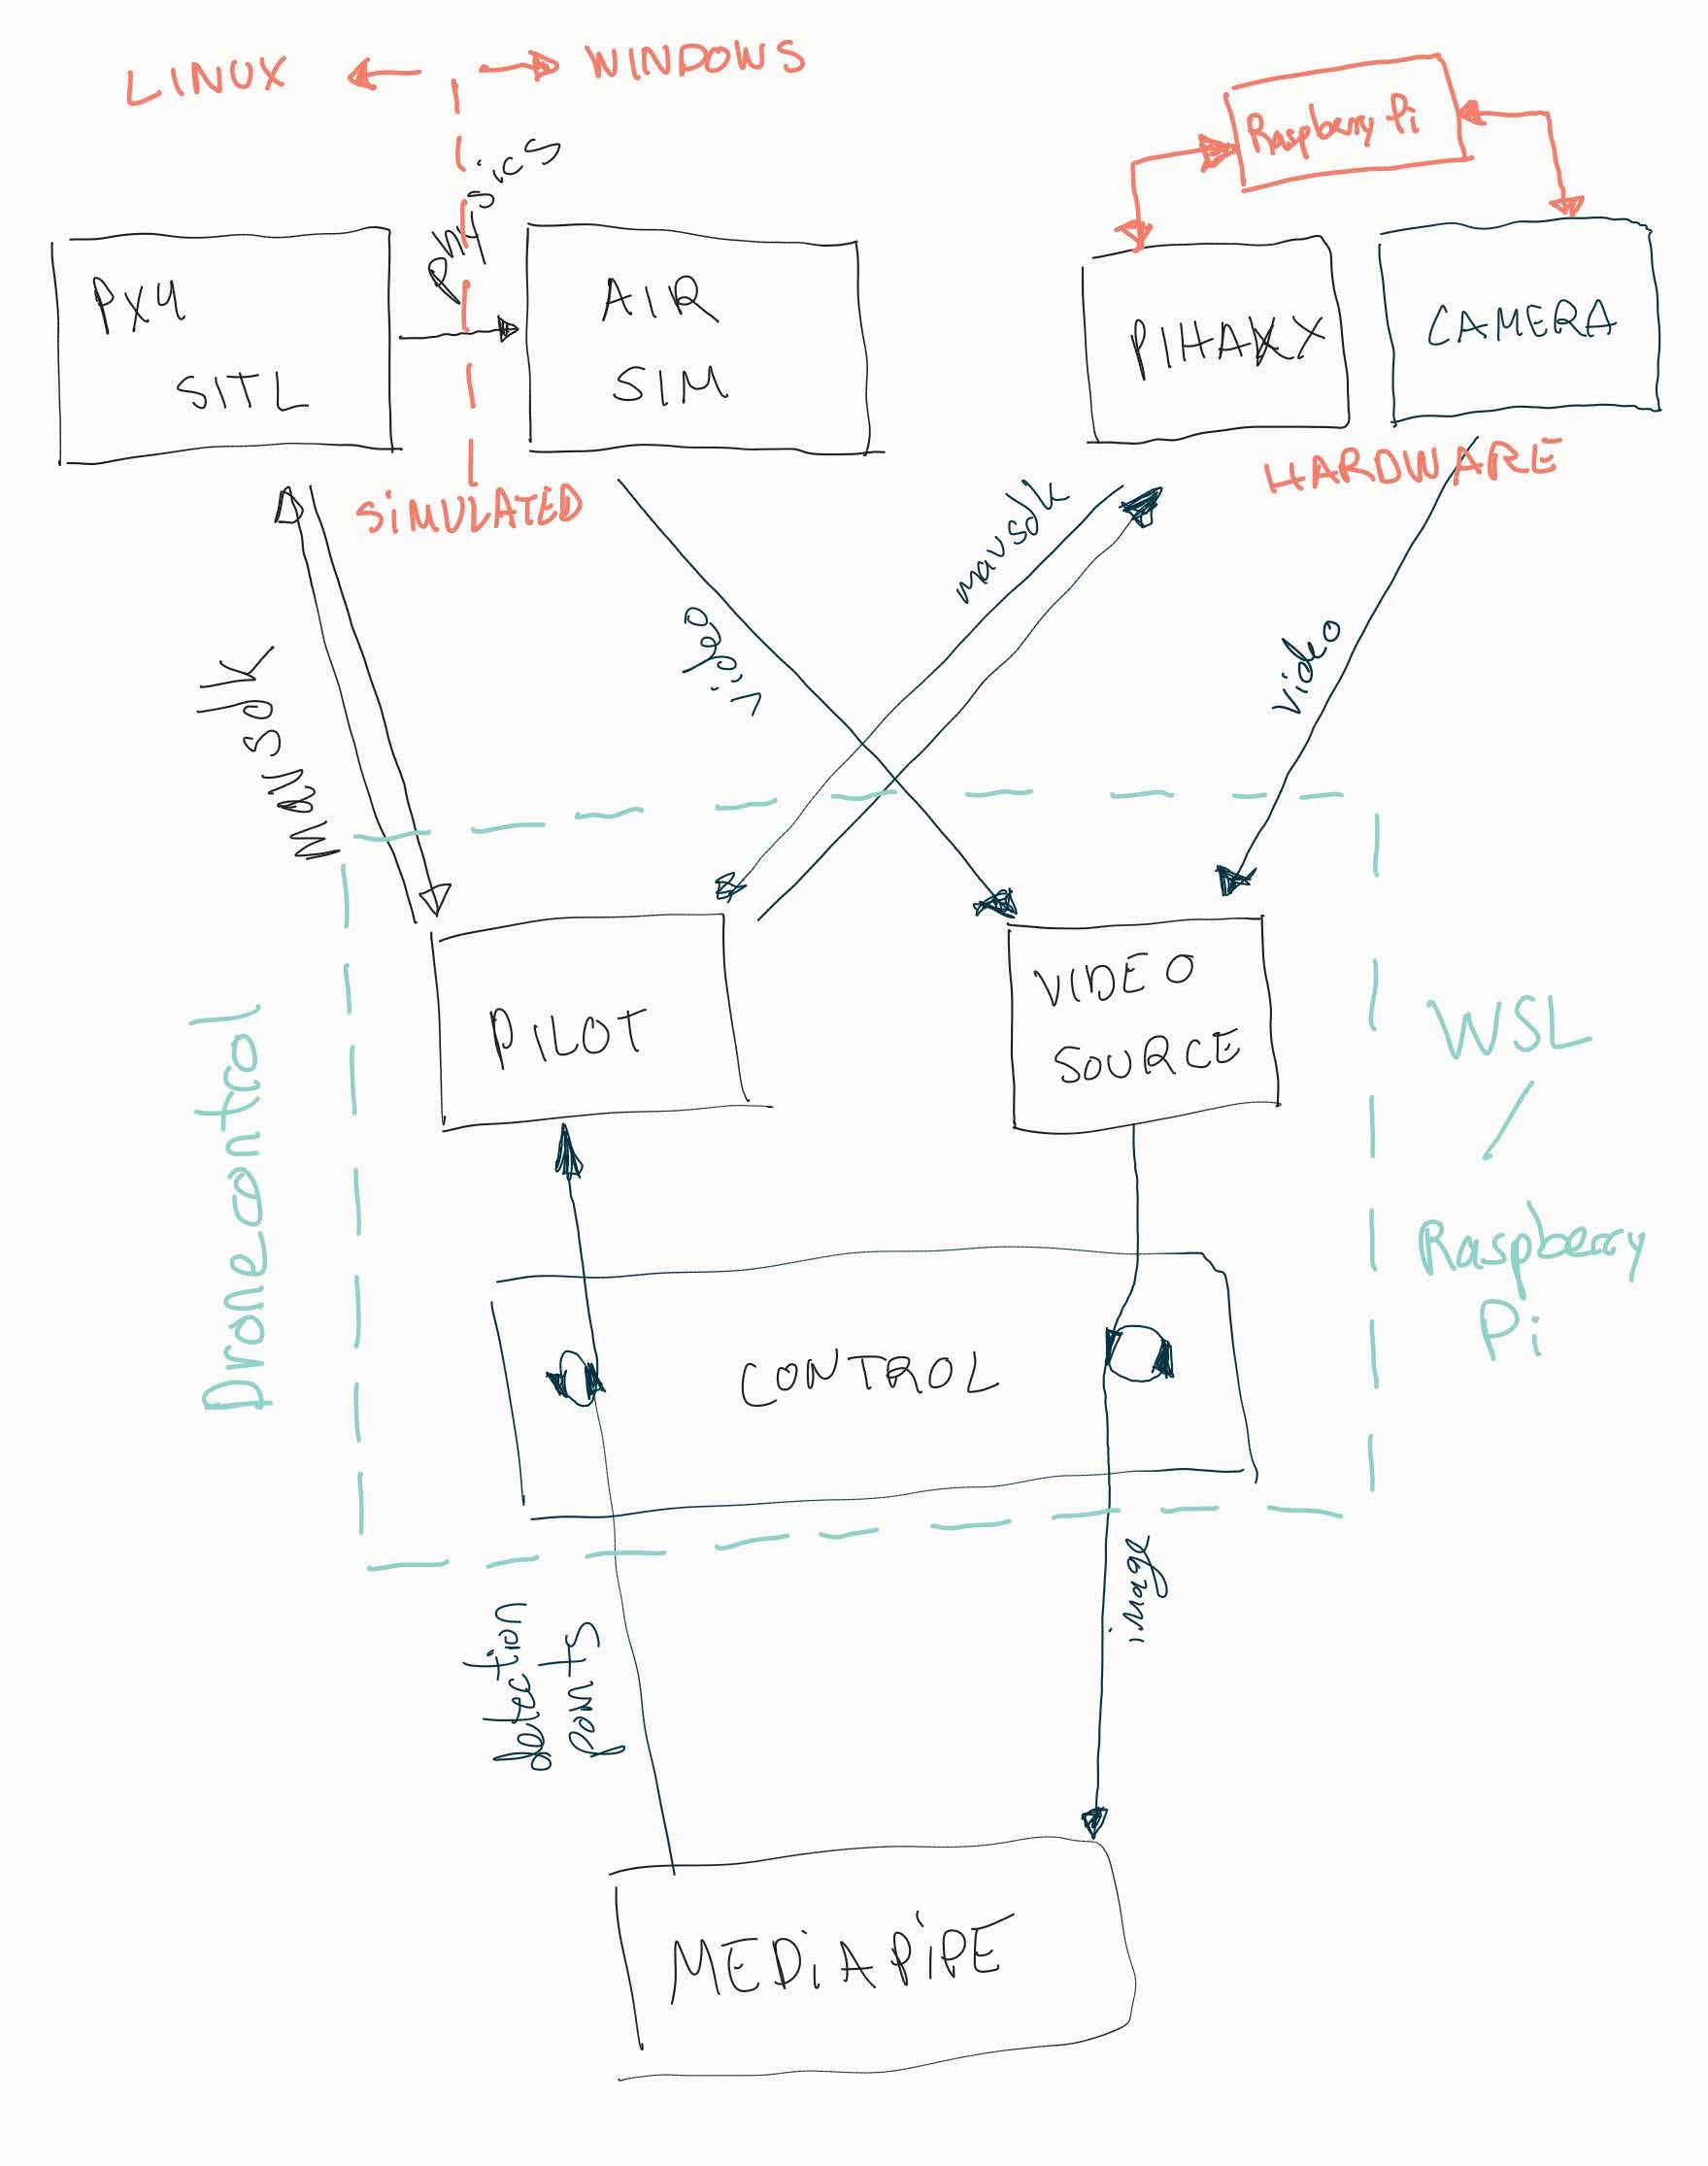 LINUX
WINDOWS
Raspberry Pi
Physics
PX4
SITL
AIR
SIM
PIHAWKX
CAMERA
SIMULATED
HARDWARE
mavsdk
video
mavsdk
video
Dronecontrol
PILOT
VIDEO
SOURCE
WSL
/
Raspberry
Pi
CONTROL
detection
points
image
MEDIAPIPE